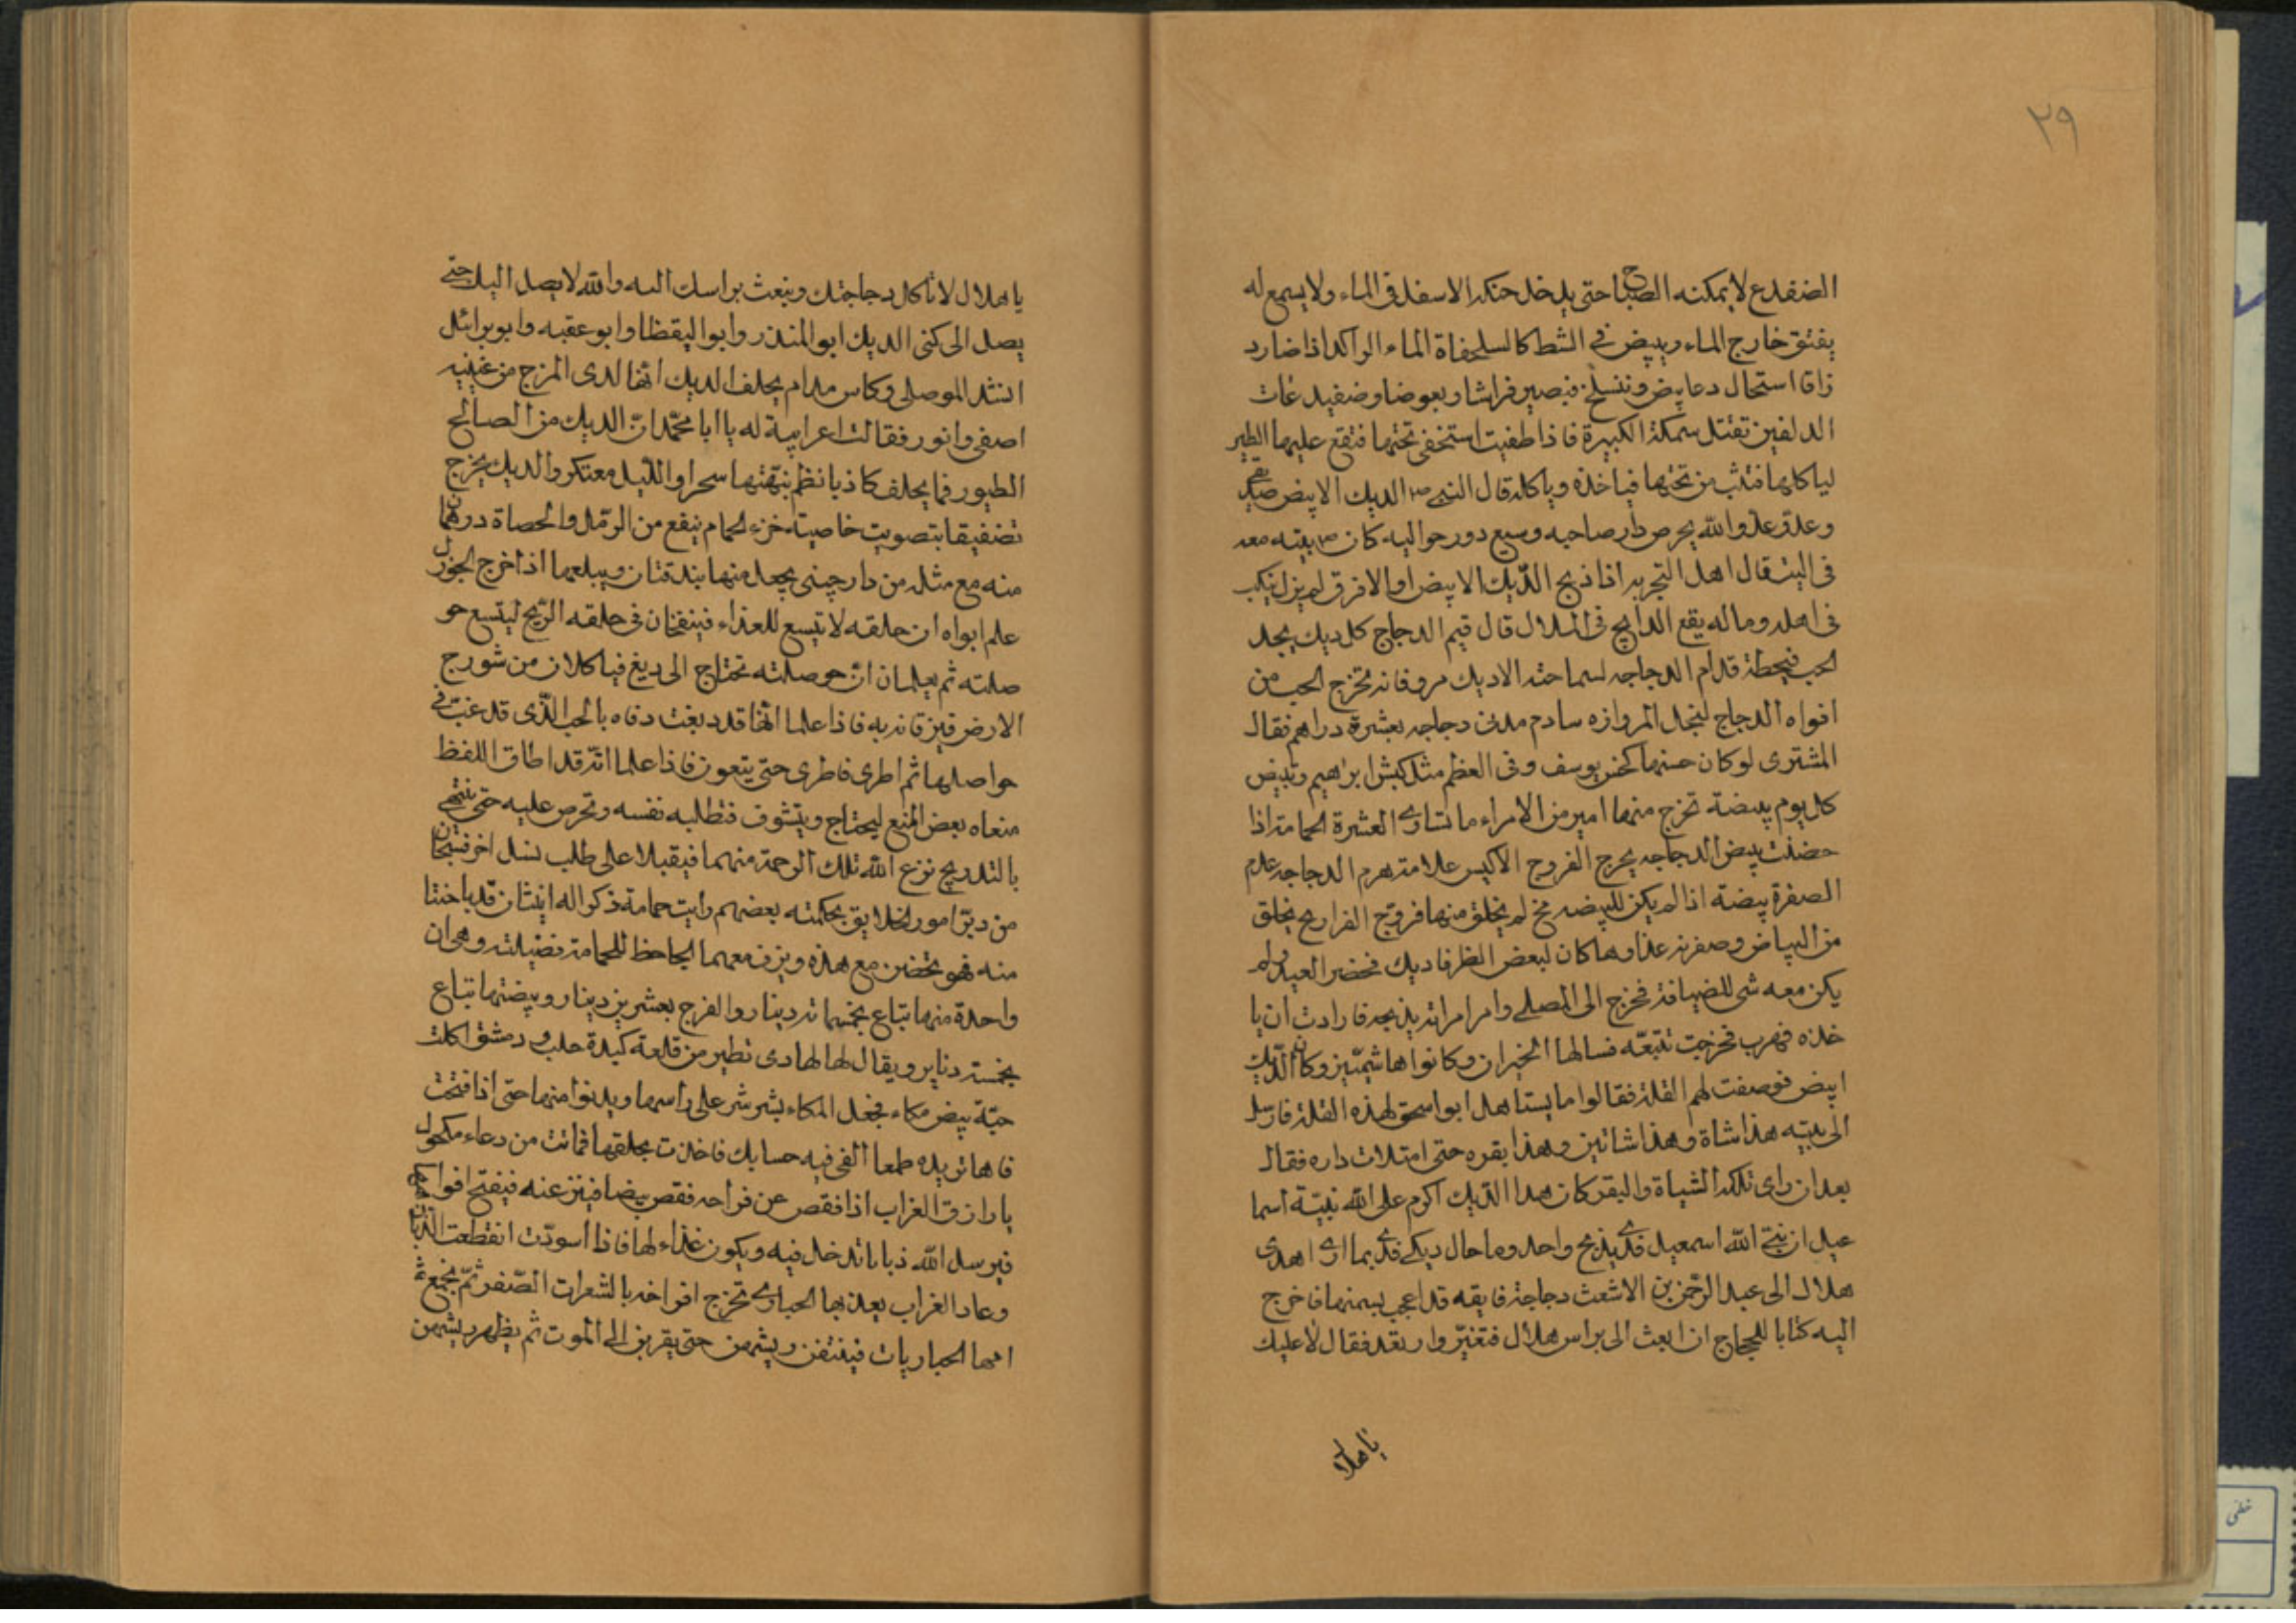 ٢٩
الضفدع لا يمكنه الصياح حتى يدخل حنكه الاسفل فى الماء ولا يسمع له
يفتق خارج الماء ويبيض فى الشط كالسلحفاة الماء الراكد اذا ضارد
زاق استحال دعا بيض وتنسلخ فيصير فراشا وبعوضا وضفيدعات
الدلفين تقتل سمكة الكبيرة فاذا طفيت استخفى تحتها فتقع عليها الطير
لياكلها فتثب من تحتها فياخذه وياكله قال النبى ص الديك الابيض صديقى
وعدو عدو الله يحرص دار صاحبه وسبع دور حواليه كان ص يبيته معه
فى البيت قال اهل التجربه اذا ذبح الديك الابيض او الافرق لم يزل ينكب
فى اهله وماله يقع الدابح فى السلال قال قيم الدجاج كل ديك يجد
الحب فيحطه قدام الدجاجه لسماحته الاديك مرو فانه تخرج الحب من
افواه الدجاج لبخل المراوزه سادم مدنى دجاجه بعشرة دراهم فقال
المشترى لو كان حسنها كحسن يوسف وفى العظم مثل كبش ابراهيم وتبيض
كل يوم بيضة تخرج منها امير من الامراء ما تساوى العشرة الحمامة اذا
حضنت بيض الدجاجه يخرج الفروج الاكيس علامة هرم الدجاجه عدم
الصفرة بيضة اذا لم يكن للبيضه مخ لم يخلق منها فروج الفراريج يخلق
من البياض وصفرته غذاوها كان لبعض الظرفا ديك فحضر العيد ولم
يكن معه شى للضيافة فخرج الى المصلى وامر امراته بذبحه فارادت ان يا
خذه فهرب فخرجت تتبعه فسالها الجيران وكانوا هاشميين وكان الديك
ابيض فوصفت لهم القلة فقالوا ما يستاهل ابو اسحق لهذه القلة فارسل
الى بيته هذا شاة وهذا شاتين وهذا بقره حتى امتلات داره فقال
بعد ان راى تلك الشياة والبقر كان هذا الديك اكرم على الله نبيه اسما
عيل ان نبى الله اسمعيل فدى بذبح واحد وما حال ديكى فدى بما ارى اهدى
هلال الى عبد الرحمن بن الاشعث دجاجة فايقه قد اعجب بسمنها فاخرج
اليه كتابا للحجاج ان ابعث الى براس هلال فتغير وارتعد فقال لا عليك
يا هلا
يا هلال لا ناكل دجاجتك ونبعث براسك اليه والله لا يصل اليك حتى
يصل الى كنى الديك ابو المنذر وابو اليقظا وابو عقبه وابو برائل
انشد الموصلى وكاس مدام يحلف الديك انها لدى المزج من عينيه
اصفى وانور فقالت اعرابية له يا ابا محمد ان الديك من الصالح
الطيور فما يحلف كاذبا نظم نبهتها سحرا والليل معتكر والديك يخرج
تصفيقا بتصويت خاصيته خزء الحمام ينفع من الرمل والحصاة درهمان
منه مع مثله من دارچينى يجعل منها بندقتان ويبلعها اذا خرج الجوزل
علم ابواه ان حلقه لا تيسع للغذاء فينفخان فى حلقه الريح ليتسع حو
صلته ثم يعلمان ان حوصلته تحتاج الى دبغ فياكلان من شورج
الارض فيزقانه به فاذا علما انها قد دبغت دفاه بالحب الذى قد غب فى
حواصلها ثم اطرى فاطرى حتى يتعون فاذا علما انه قد اطاق اللفظ
منعاه بعض المنع ليحتاج ويتشوف فتطلبه نفسه وتحرص عليه حتى ينتهى
بالتدريج نزع الله تلك الرحمة منهما فيقبلا على طلب نسل اخر فسبحان
من دبر امور الخلايق بحكمته بعضهم رايت حمامة ذكر اله انيثان قد باضتا
منه فهو يحضن مع هذه ويزف معهما الجاحظ للحمامة فضيلة وهى ان
واحدة منها تباع بخمسمائة دينار والفرج بعشرين دينار وبيضتها تباع
بخمسة دنانير ويقال لها الهادى تطير من قلعة كبدة حلب ودمشق اكلت
حية بيض مكاء فجعل المكاء يشرشر على راسها ويدنوا منها حتى اذا فتحت
فاها تريده طمعا القى فيه حسابك فاخذت بحلقها فماتت من دعاء مكحول
يا رازق الغراب اذا فقص عن فراخه فقص بيضا فينز عنه فيفتح افواهها
فيرسل الله ذبابا تدخل فيه ويكون غذاء لها فاذا اسودت انقطعت الذبان
وعاد الغراب يعذبها الحبارى تخرج افراخه بالشعرات الصفر ثم يجتمع ثم
امها الحباريات فينتفن ريشهن حتى يقربن الى الموت ثم يظهر ريشهن